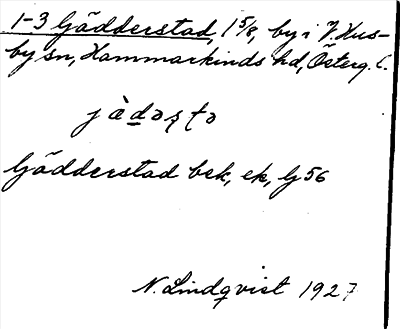 1-3 Gädderstad, 1 5/8, by i V. Hus-
by sn, Hammarkinds hd, Österg. l.
jàdəʂʈə
Gädderstad bek, ek, Gj 56
N. Lindqvist 1927